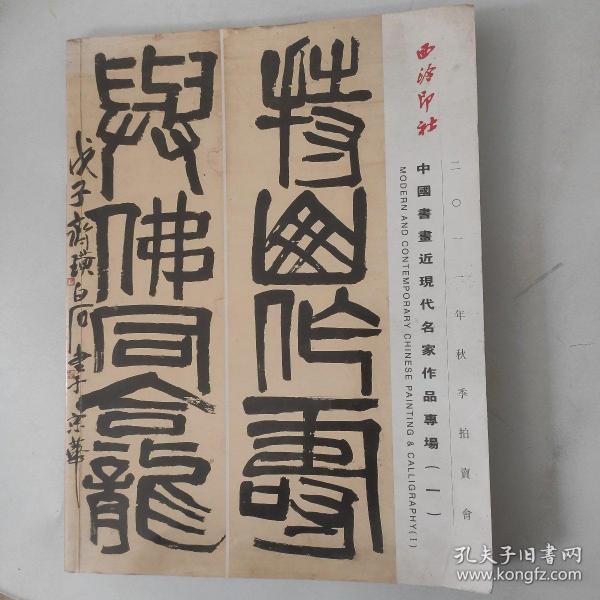 西泠印社
二〇一一年秋季拍賣會
中國書畫近現代名家作品專場(一)
MODERN AND CONTEMPORARY CHINESE PAINTING & CALLIGRAPHY(I)
持山作壽
與佛同龕
戊子齊璜白石書于京華
孔夫子旧书网
www.kongfz.com